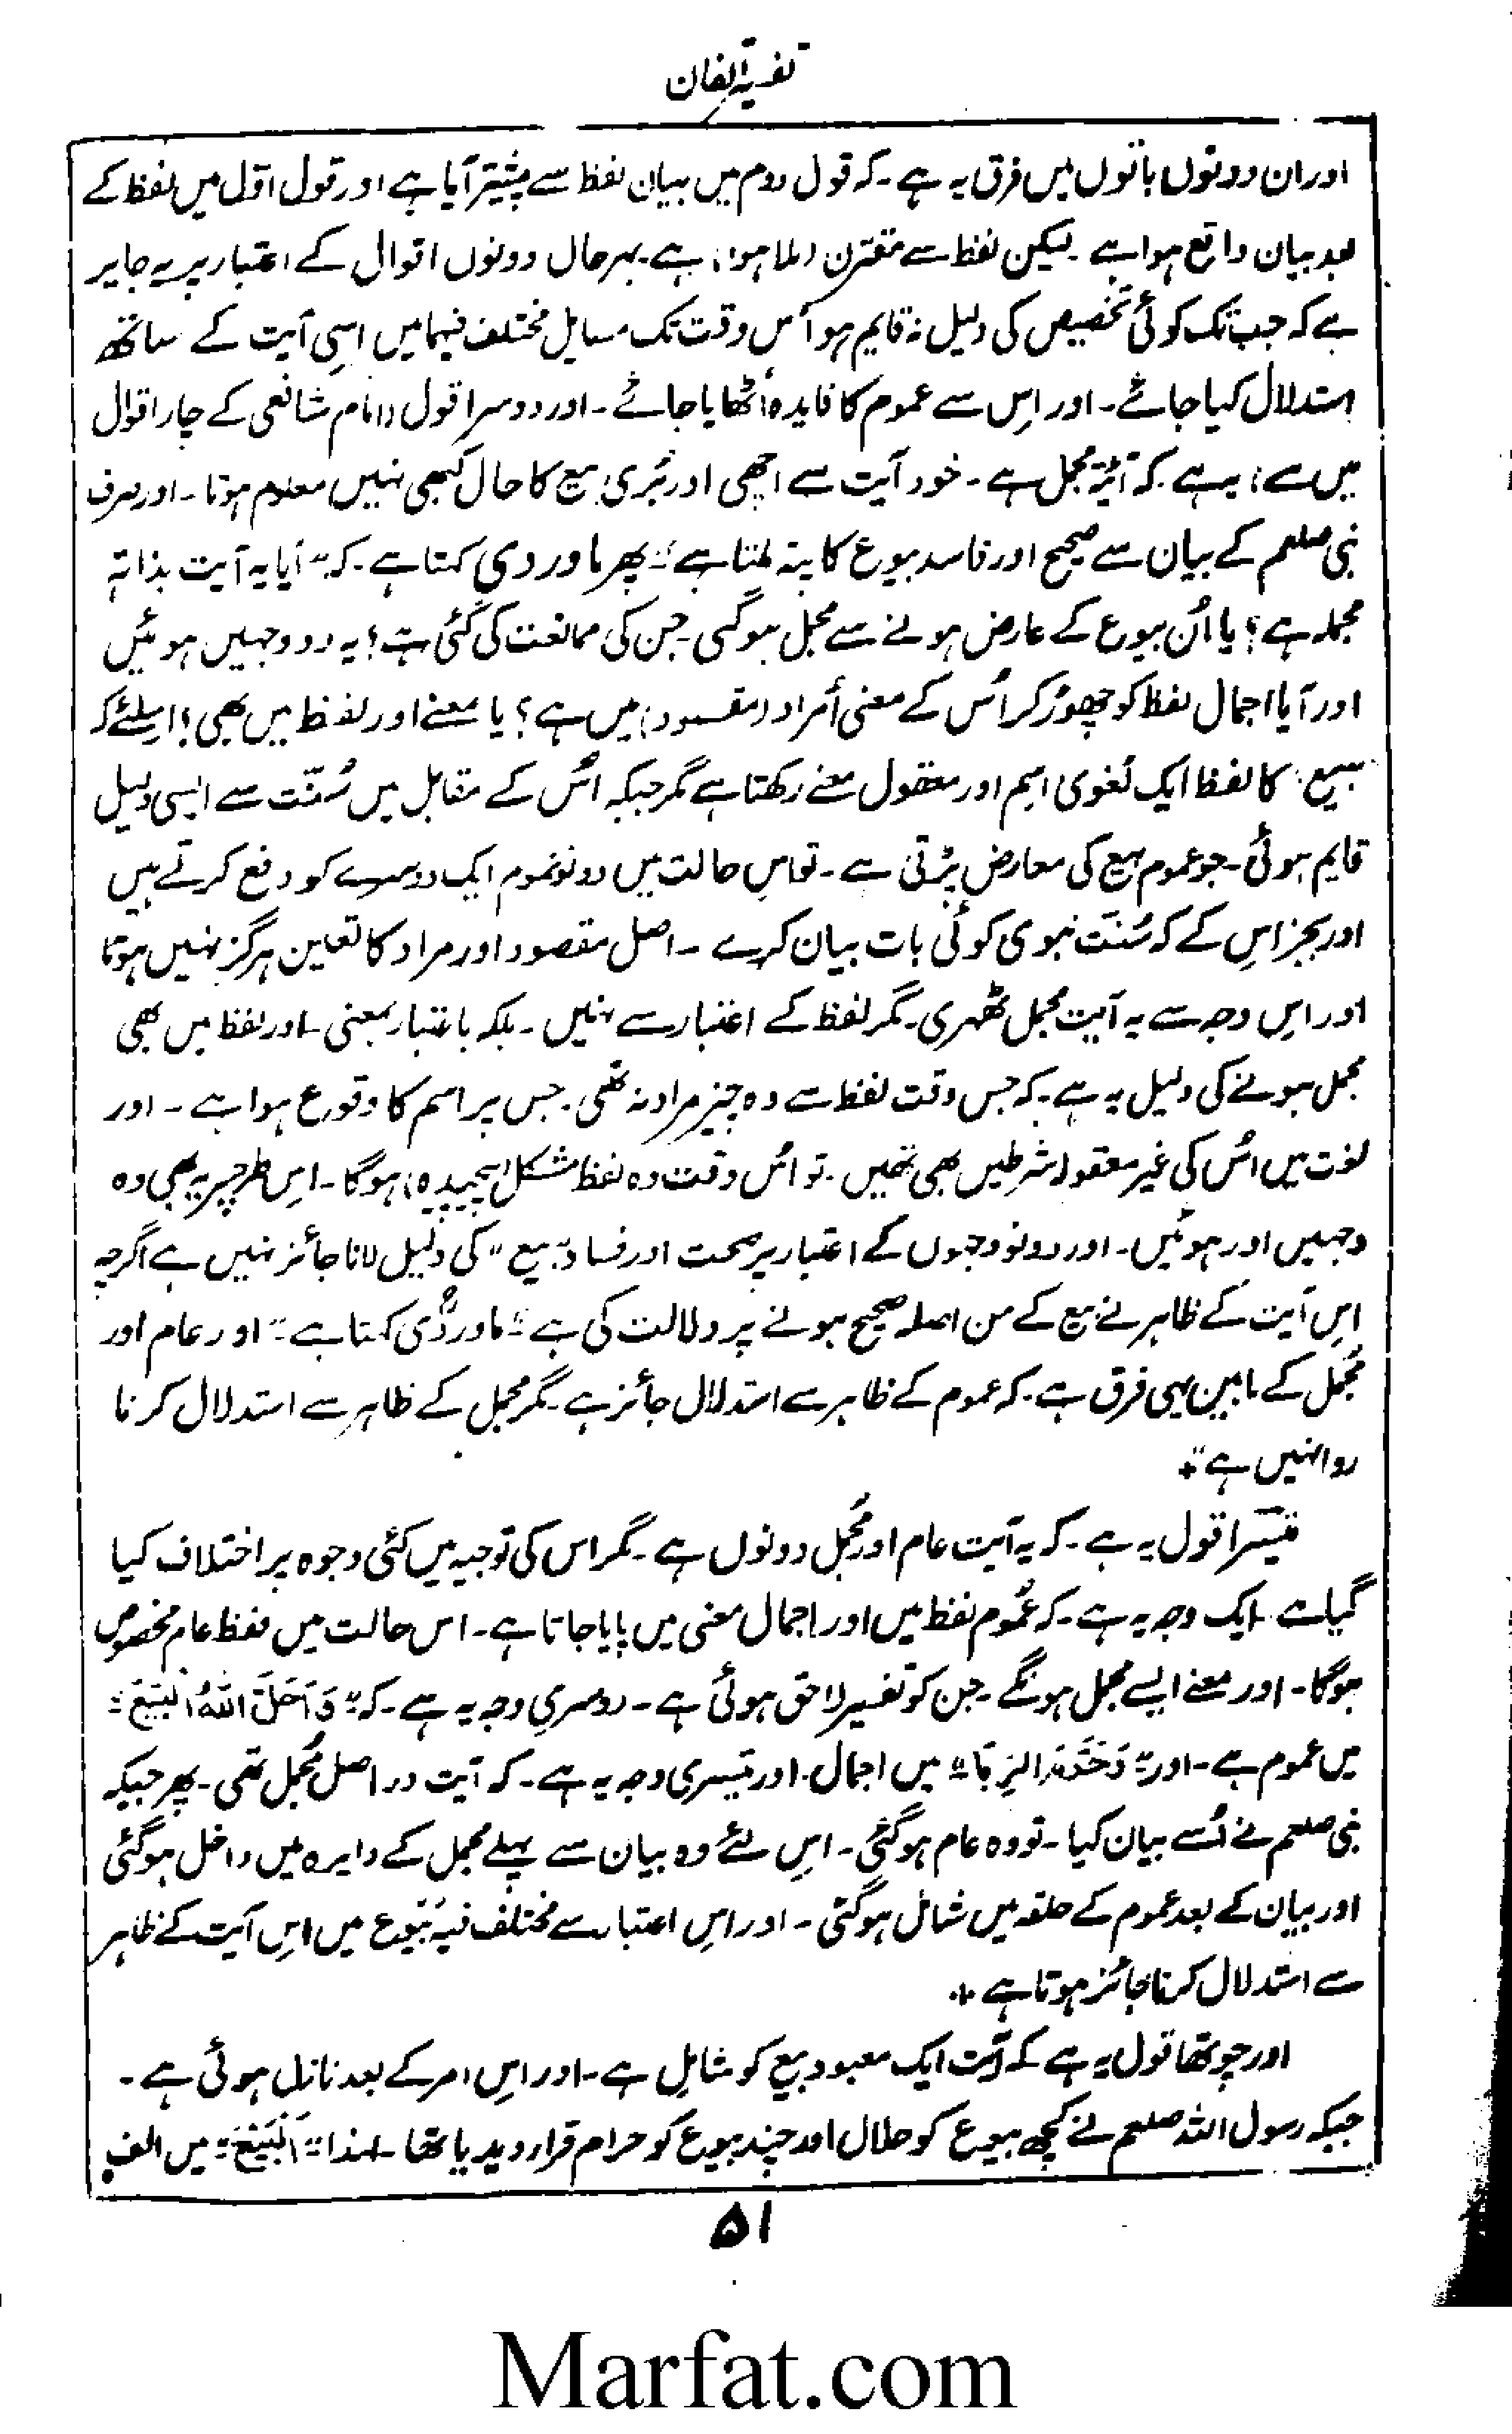 تفسیر اتقان
اور ان دونوں باتوں میں فرق یہ ہے۔ کہ قول دوم میں بیان لفظ سے پیشتر آیا ہے اور قول اوّل میں لفظ کے
بعد بیان واقع ہوا ہے۔ لیکن لفظ سے مقترن (ملا ہوا) ہے۔ بہرحال دونوں اقوال کے اعتبار پر یہ جایز
ہے کہ جب تک کوئی تخصیص کی دلیل نہ قایم ہو اُس وقت تک مسایل مختلف فیہا میں اسی آیت کے ساتھ
استدلال کیا جائے۔ اور اِس سے عموم کا فایدہ اُٹھایا جائے۔ اور دوسرا قول (امام شافعی کے چار اقوال
میں سے) یہ ہے۔ کہ آیۃ مجمل ہے۔ خود آیت سے اچھی اور بُری بیع کا حال کبھی نہیں معلوم ہوتا۔ اور صرف
نبی صلعم کے بیان سے صحیح اور فاسد بیوع کا پتہ لگتا ہے" پھر ماوردی کہتا ہے۔ کہ "آیا یہ آیت بذاتہٖ
مجملہ ہے؟ یا اُن بیوع کے عارض ہونے سے مجمل ہوگئی۔ جن کی ممانعت کی گئی ہے؟ یہ دو وجہیں ہوئیں
اور آیا اجمال لفظ کو چھوڑ کر اُس کے معنی اُمراد (مقسود) میں ہے؟ یا معنے اور لفظ میں بھی؟ اسلئے کہ
بیع" کا لفظ ایک لُغوی اسم اور معقول معنے رکھتا ہے مگر جبکہ اُس کے مقابل میں سُنّت سے ایسی دلیل
قایم ہوئی۔ جو عموم بیع کی معارض پڑتی ہے۔ تو اس حالت میں دونو عموم ایک دوسرے کو دفع کرتے ہیں
اور بجز اِس کے کہ سُنّت نبوی کوئی بات بیان کرے۔ اصل مقصود اور مراد کا تعین ہرگز نہیں ہوتا
اور اِس وجہ سے یہ آیت مجمل ٹھہری۔ مگر لفظ کے اعتبار سے نہیں۔ بلکہ باعتبار معنی۔ اور لفظ میں بھی
مجمل ہونے کی دلیل یہ ہے۔ کہ جس وقت لفظ سے وہ چیز مراد نہ تھی۔ جس پر اسم کا وقوع ہوا ہے۔ اور
لغت میں اُس کی غیر معقول شرطیں بھی تھیں۔ تو اُس وقت وہ لفظ مشکل (پیچیدہ) ہوگا۔ اِس طرح پر یہ بھی دو
وجہیں اور ہوئیں۔ اور دونو وجہوں کے اعتبار پر صحت اور فساد "بیع" کی دلیل لانا جائز نہیں ہے اگرچہ
اِس آیت کے ظاہر نے بیع کے من اصلہ صحیح ہونے پر دلالت کی ہے" ماوردی کہتا ہے "اور عام اور
مُجمل کے مابین یہی فرق ہے۔ کہ عموم کے ظاہر سے استدلال جائز ہے۔ مگر مجمل کے ظاہر سے استدلال کرنا
روا نہیں ہے"
تیسرا قول یہ ہے۔ کہ یہ آیت عام اور مُجمل دونوں ہے۔ مگر اس کی توجیہ میں کئی وجوہ پر اختلاف کیا
گیا ہے۔ ایک وجہ یہ ہے۔ کہ عُموم لفظ میں اور اجمال معنی میں پایا جاتا ہے۔ اس حالت میں لفظ عام مخصوص
ہوگا۔ اور معنے ایسے مجمل ہونگے۔ جن کو تفسیر لاحق ہوئی ہے۔ دوسری وجہ یہ ہے۔ کہ "وَاَحَلَّ اللّٰہُ الْبَیْعَ"
میں عموم ہے۔ اور "وَحَرَّمَ الرِّبَا" میں اجمال۔ اور تیسری وجہ یہ ہے۔ کہ آیت در اصل مُجمل تھی۔ پھر جبکہ
نبی صلعم نے اُسے بیان کیا۔ تو وہ عام ہوگئی۔ اِس لئے وہ بیان سے پہلے مجمل کے دایرہ میں داخل ہوگئی
اور بیان کے بعد عموم کے حلقہ میں شامل ہوگئی۔ اور اِس اعتبار سے مختلف فیہ بُیوع میں اِس آیت کے ظاہر
سے استدلال کرنا جائز ہوتا ہے
اور چوتھا قول یہ ہے کہ آیت ایک معہود بیع کو شامل ہے۔ اور اِس امر کے بعد نازل ہوئی ہے۔
جبکہ رسول اللہ صلعم نے کچھ بیوع کو حلال اور چند بیوع کو حرام قرار دیدیا تھا۔ لہٰذا "اَلْبَیْعَ" میں الف
۵۱
Marfat.com